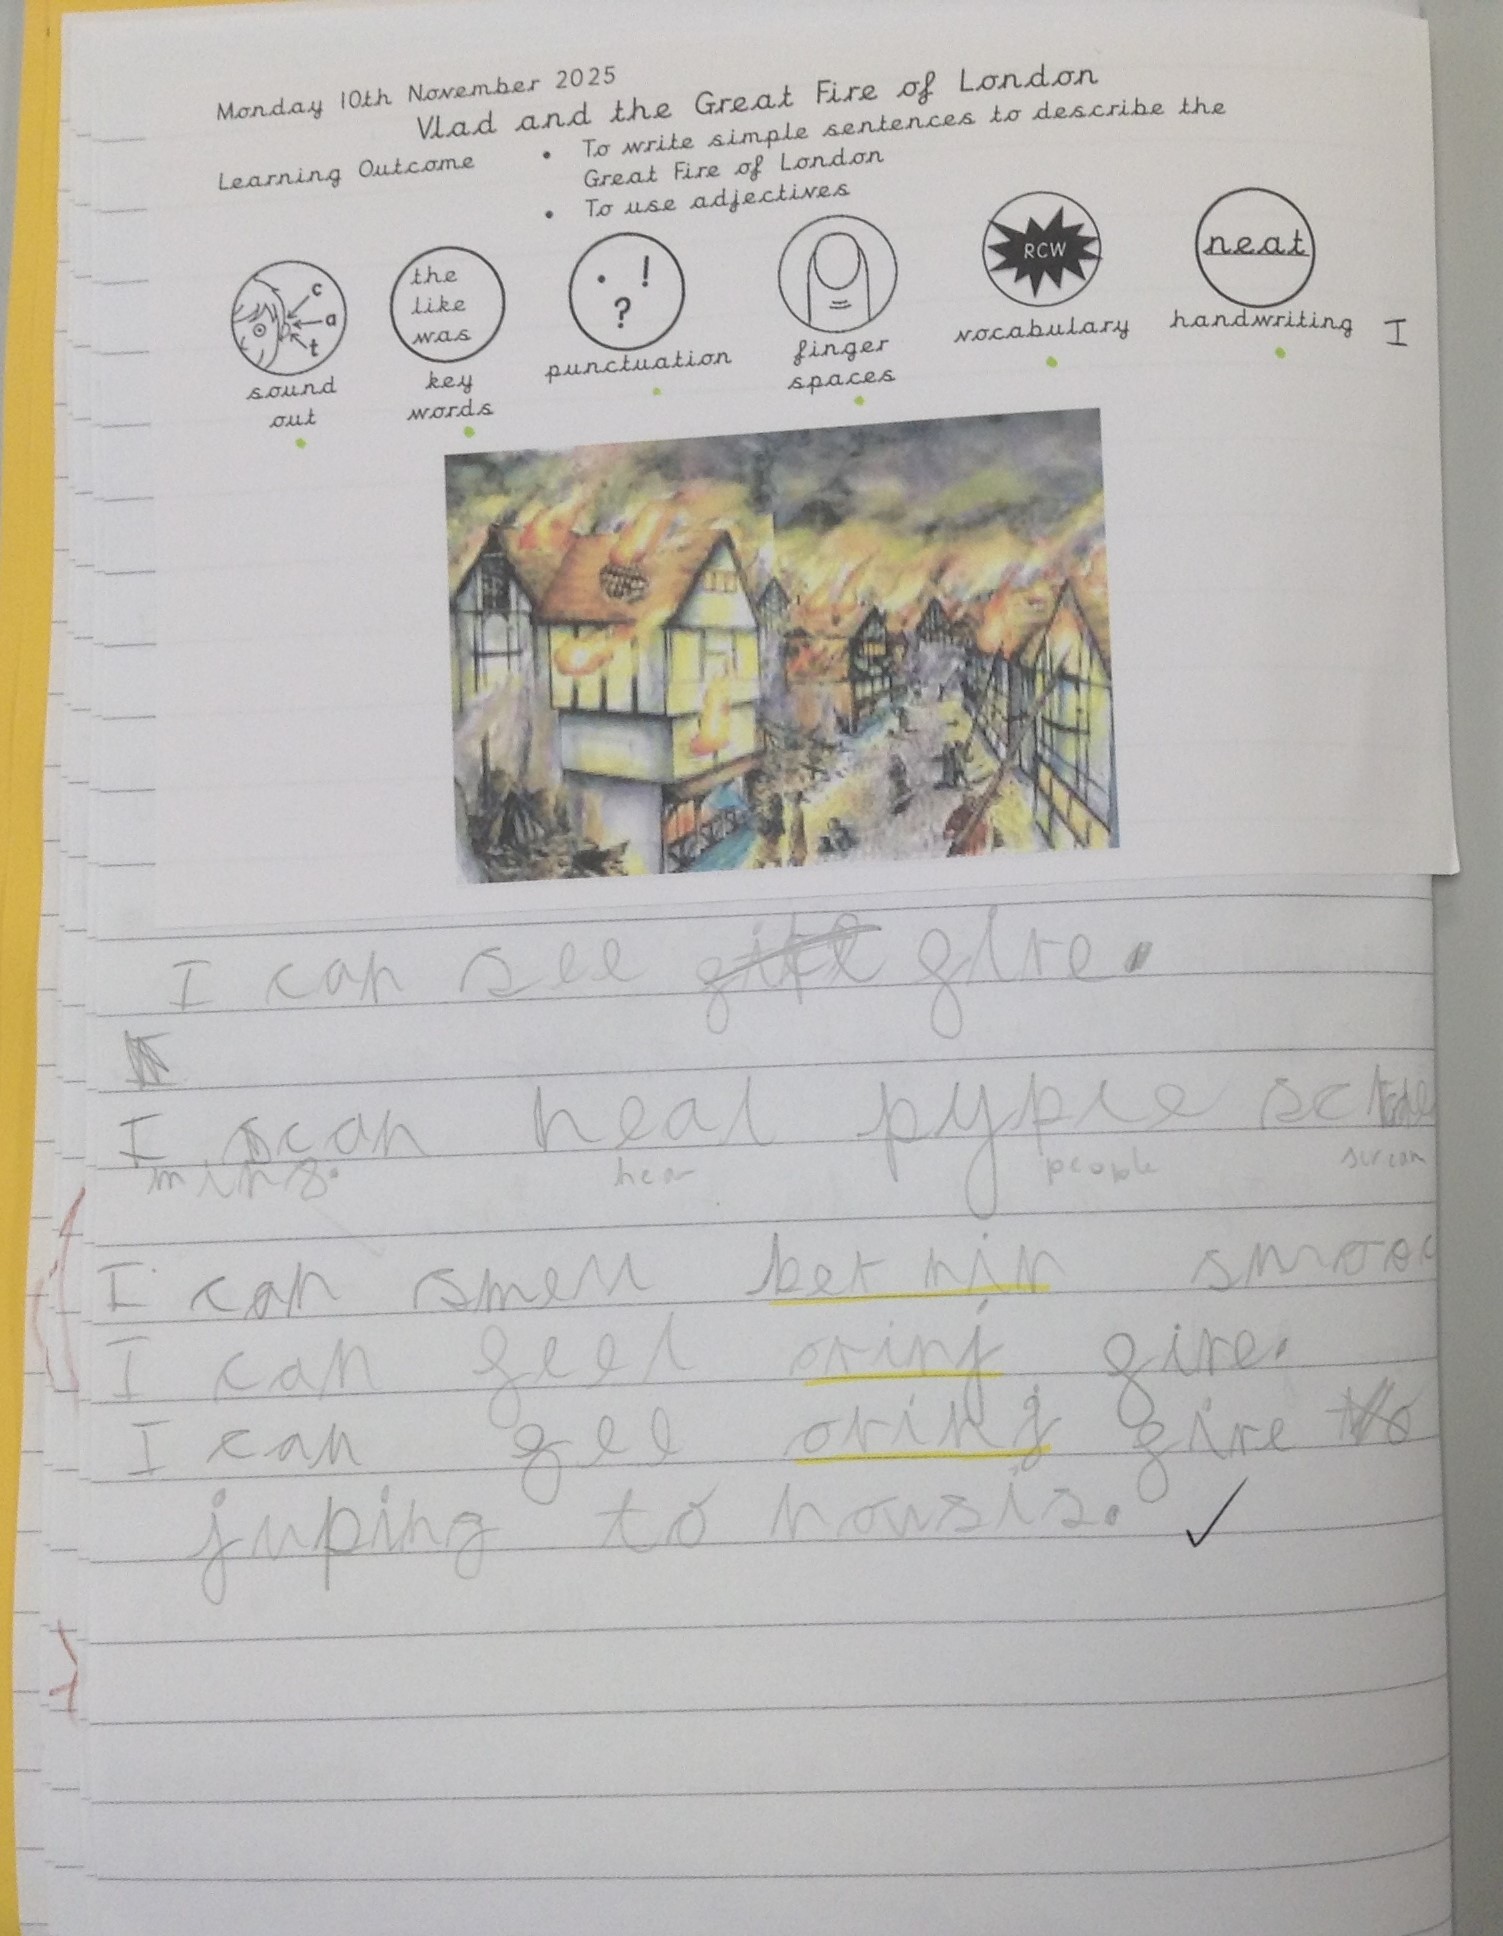 Monday 10th November 2025
Vlad and the Great Fire of London
Learning Outcome
• To write simple sentences to describe the
Great Fire of London
• To use adjectives
c
a
t
sound
out
the
like
was
key
words
. !
?
punctuation
finger
spaces
RCW
vocabulary
neat
handwriting
I
I can see fire.
I can heal pyple
ming.
hear people scream
I can smell ber nin smooc
I can feel orinj fire.
I can fel orinj fire
juping to housis.